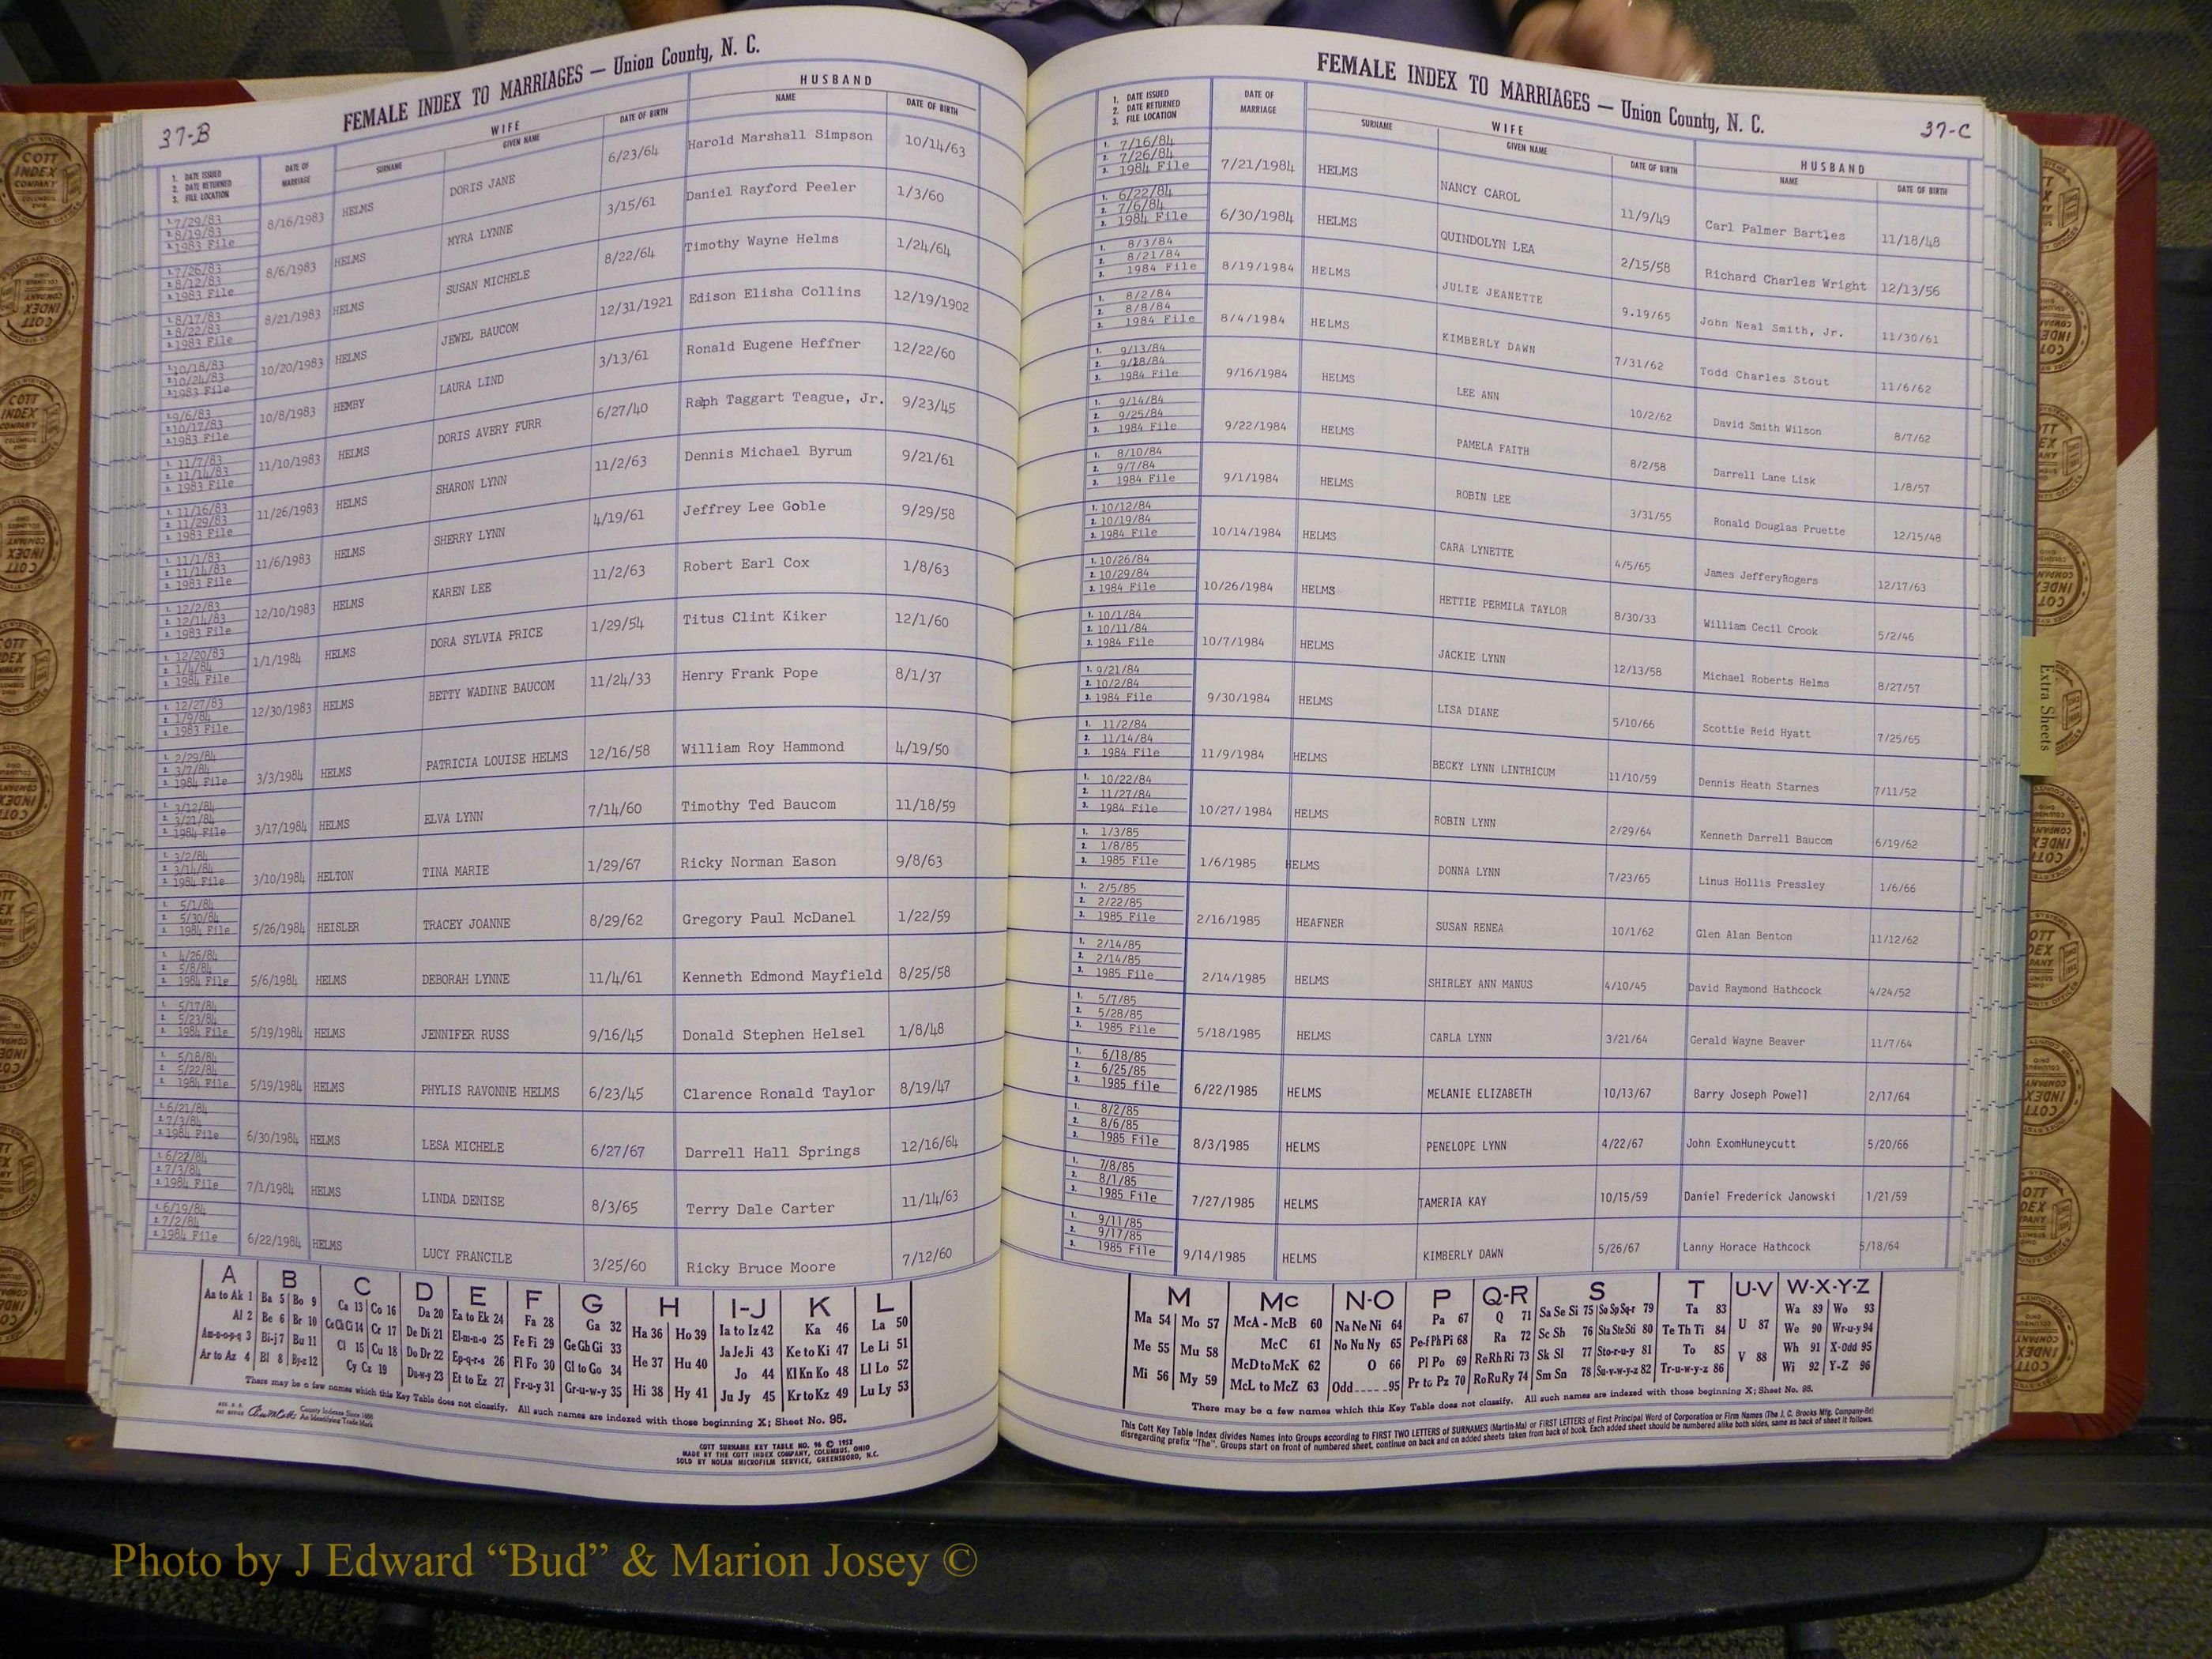 FEMALE INDEX TO MARRIAGES — Union County, N. C.
37-B
1. DATE ISSUED
2. DATE RETURNED
3. FILE LOCATION
DATE OF MARRIAGE
WIFE
SURNAME GIVEN NAME DATE OF BIRTH
HUSBAND
NAME DATE OF BIRTH
1. 7/29/83
2. 8/19/83
3. 1983 File
8/16/1983 HELMS DORIS JANE 6/23/64 Harold Marshall Simpson 10/14/63
1. 7/26/83
2. 8/12/83
3. 1983 File
8/6/1983 HELMS MYRA LYNNE 3/15/61 Daniel Rayford Peeler 1/3/60
1. 8/17/83
2. 8/22/83
3. 1983 File
8/21/1983 HELMS SUSAN MICHELE 8/22/64 Timothy Wayne Helms 1/24/64
1. 10/18/83
2. 10/24/83
3. 1983 File
10/20/1983 HELMS JEWEL BAUCOM 12/31/1921 Edison Elisha Collins 12/19/1902
1. 9/6/83
2. 10/17/83
3. 1983 File
10/8/1983 HEMBY LAURA LIND 3/13/61 Ronald Eugene Heffner 12/22/60
1. 11/7/83
2. 11/14/83
3. 1983 File
11/10/1983 HELMS DORIS AVERY FURR 6/27/40 Ralph Taggart Teague, Jr. 9/23/45
1. 11/16/83
2. 11/29/83
3. 1983 File
11/26/1983 HELMS SHARON LYNN 11/2/63 Dennis Michael Byrum 9/21/61
1. 11/1/83
2. 11/14/83
3. 1983 File
11/6/1983 HELMS SHERRY LYNN 4/19/61 Jeffrey Lee Goble 9/29/58
1. 12/2/83
2. 12/14/83
3. 1983 File
12/10/1983 HELMS KAREN LEE 11/2/63 Robert Earl Cox 1/8/63
1. 12/20/83
2. 1/4/84
3. 1984 File
1/1/1984 HELMS DORA SYLVIA PRICE 1/29/54 Titus Clint Kiker 12/1/60
1. 12/27/83
2. 1/9/84
3. 1983 File
12/30/1983 HELMS BETTY WADINE BAUCOM 11/24/33 Henry Frank Pope 8/1/37
1. 2/29/84
2. 3/7/84
3. 1984 File
3/3/1984 HELMS PATRICIA LOUISE HELMS 12/16/58 William Roy Hammond 4/19/50
1. 3/12/84
2. 3/21/84
3. 1984 File
3/17/1984 HELMS ELVA LYNN 7/14/60 Timothy Ted Baucom 11/18/59
1. 3/2/84
2. 3/14/84
3. 1984 File
3/10/1984 HELTON TINA MARIE 1/29/67 Ricky Norman Eason 9/8/63
1. 5/1/84
2. 5/30/84
3. 1984 File
5/26/1984 HEISLER TRACEY JOANNE 8/29/62 Gregory Paul McDanel 1/22/59
1. 4/26/84
2. 5/8/84
3. 1984 File
5/6/1984 HELMS DEBORAH LYNNE 11/4/61 Kenneth Edmond Mayfield 8/25/58
1. 5/17/84
2. 5/23/84
3. 1984 File
5/19/1984 HELMS JENNIFER RUSS 9/16/45 Donald Stephen Helsel 1/8/48
1. 5/18/84
2. 5/22/84
3. 1984 File
5/19/1984 HELMS PHYLIS RAVONNE HELMS 6/23/45 Clarence Ronald Taylor 8/19/47
1. 6/21/84
2. 7/3/84
3. 1984 File
6/30/1984 HELMS LESA MICHELE 6/27/67 Darrell Hall Springs 12/16/64
1. 6/22/84
2. 7/3/84
3. 1984 File
7/1/1984 HELMS LINDA DENISE 8/3/65 Terry Dale Carter 11/14/63
1. 6/19/84
2. 7/2/84
3. 1984 File
6/22/1984 HELMS LUCY FRANCILE 3/25/60 Ricky Bruce Moore 7/12/60
A B C D E F G H I-J K L
Aa to Ak 1 Ba 5 Bo 9 Ca 13 Co 16 Da 20 Ea to Ek 24 Fa 28 Ga 32 Ha 36 Ho 39 Ia to Iz 42 Ka 46 La 50
Al 2 Be 6 Br 10 Ce Ch Ci 14 Cr 17 De Di 21 El-m-n-o 25 Fe Fi 29 Ge Gh Gi 33 He 37 Hu 40 Ja Je Ji 43 Ke to Ki 47 Le Li 51
Am-n-o-p-q 3 Bi-j 7 Bu 11 Cl 15 Cu 18 Do Dr 22 Ep-q-r-s 26 Fl Fo 30 Gl to Go 34 Hi 38 Hy 41 Jo 44 Kl Kn Ko 48 Ll Lo 52
Ar to Az 4 Bl 8 By-z 12 Cy Cz 19 Du-w-y 23 Et to Ez 27 Fr-u-y 31 Gr-u-w-y 35 Ju Jy 45 Kr to Kz 49 Lu Ly 53
There may be a few names which this Key Table does not classify. All such names are indexed with those beginning X; Sheet No. 95.
County Indexes Since 1888
An Identifying Trade Mark
COTT SURNAME KEY TABLE NO. 96 © 1952
MADE BY THE COTT INDEX COMPANY, COLUMBUS, OHIO
SOLD BY NOLAN MICROFILM SERVICE, GREENSBORO, N.C.
FEMALE INDEX TO MARRIAGES — Union County, N. C.
37-C
1. DATE ISSUED
2. DATE RETURNED
3. FILE LOCATION
DATE OF MARRIAGE
WIFE
SURNAME GIVEN NAME DATE OF BIRTH
HUSBAND
NAME DATE OF BIRTH
1. 7/16/84
2. 7/26/84
3. 1984 File
7/21/1984 HELMS NANCY CAROL 11/9/49 Carl Palmer Bartles 11/18/48
1. 6/22/84
2. 7/6/84
3. 1984 File
6/30/1984 HELMS QUINDOLYN LEA 2/15/58 Richard Charles Wright 12/13/56
1. 8/3/84
2. 8/21/84
3. 1984 File
8/19/1984 HELMS JULIE JEANETTE 9.19/65 John Neal Smith, Jr. 11/30/61
1. 8/2/84
2. 8/8/84
3. 1984 File
8/4/1984 HELMS KIMBERLY DAWN 7/31/62 Todd Charles Stout 11/6/62
1. 9/13/84
2. 9/18/84
3. 1984 File
9/16/1984 HELMS LEE ANN 10/2/62 David Smith Wilson 8/7/62
1. 9/14/84
2. 9/25/84
3. 1984 File
9/22/1984 HELMS PAMELA FAITH 8/2/58 Darrell Lane Lisk 1/8/57
1. 8/10/84
2. 9/7/84
3. 1984 File
9/1/1984 HELMS ROBIN LEE 3/31/55 Ronald Douglas Pruette 12/15/48
1. 10/12/84
2. 10/19/84
3. 1984 File
10/14/1984 HELMS CARA LYNETTE 4/5/65 James JefferyRogers 12/17/63
1. 10/26/84
2. 10/29/84
3. 1984 File
10/26/1984 HELMS HETTIE PERMILA TAYLOR 8/30/33 William Cecil Crook 5/2/46
1. 10/1/84
2. 10/11/84
3. 1984 File
10/7/1984 HELMS JACKIE LYNN 12/13/58 Michael Roberts Helms 8/27/57
1. 9/21/84
2. 10/2/84
3. 1984 File
9/30/1984 HELMS LISA DIANE 5/10/66 Scottie Reid Hyatt 7/25/65
1. 11/2/84
2. 11/14/84
3. 1984 File
11/9/1984 HELMS BECKY LYNN LINTHICUM 11/10/59 Dennis Heath Starnes 7/11/52
1. 10/22/84
2. 11/27/84
3. 1984 File
10/27/1984 HELMS ROBIN LYNN 2/29/64 Kenneth Darrell Baucom 6/19/62
1. 1/3/85
2. 1/8/85
3. 1985 File
1/6/1985 HELMS DONNA LYNN 7/23/65 Linus Hollis Pressley 1/6/66
1. 2/5/85
2. 2/22/85
3. 1985 File
2/16/1985 HEAFNER SUSAN RENEA 10/1/62 Glen Alan Benton 11/12/62
1. 2/14/85
2. 2/14/85
3. 1985 File
2/14/1985 HELMS SHIRLEY ANN MANUS 4/10/45 David Raymond Hathcock 4/24/52
1. 5/7/85
2. 5/28/85
3. 1985 File
5/18/1985 HELMS CARLA LYNN 3/21/64 Gerald Wayne Beaver 11/7/64
1. 6/18/85
2. 6/25/85
3. 1985 file
6/22/1985 HELMS MELANIE ELIZABETH 10/13/67 Barry Joseph Powell 2/17/64
1. 8/2/85
2. 8/6/85
3. 1985 File
8/3/1985 HELMS PENELOPE LYNN 4/22/67 John ExomHuneycutt 5/20/66
1. 7/8/85
2. 8/1/85
3. 1985 File
7/27/1985 HELMS TAMERIA KAY 10/15/59 Daniel Frederick Janowski 1/21/59
1. 9/11/85
2. 9/17/85
3. 1985 File
9/14/1985 HELMS KIMBERLY DAWN 5/26/67 Lanny Horace Hathcock 5/18/64
M Mc N-O P Q-R S T U-V W-X-Y-Z
Ma 54 Mo 57 McA - McB 60 Na Ne Ni 64 Pa 67 Q 71 Sa Se Si 75 So Sp Sq-r 79 Ta 83 U 87 Wa 89 Wo 93
Me 55 Mu 58 McC 61 No Nu Ny 65 Pe-f Ph Pi 68 Ra 72 Sc Sh 76 Sta Ste Sti 80 Te Th Ti 84 V 88 We 90 Wr-u-y 94
Mi 56 My 59 McD to McK 62 O 66 Pl Po 69 Re Rh Ri 73 Sk Sl 77 Sto-r-u-y 81 To 85 Wh 91 X-Odd 95
McL to McZ 63 Odd 95 Pr to Pz 70 Ro Ru Ry 74 Sm Sn 78 Su-v-w-y-z 82 Tr-u-w-y-z 86 Wi 92 Y-Z 96
There may be a few names which this Key Table does not classify. All such names are indexed with those beginning X; Sheet No. 95.
This Cott Key Table Index divides Names into Groups according to FIRST TWO LETTERS of SURNAMES (Martin-Ma) or FIRST LETTERS of First Principal Word of Corporation or Firm Names (The J. C. Brooks Mfg. Company-Br)
disregarding prefix "The". Groups start on front of numbered sheet, continue on back and on added sheets taken from back of book. Each added sheet should be numbered alike both sides, same as back of sheet it follows.
Extra Sheets
COTT INDEX COMPANY COLUMBUS OHIO
Photo by J Edward “Bud” & Marion Josey ©